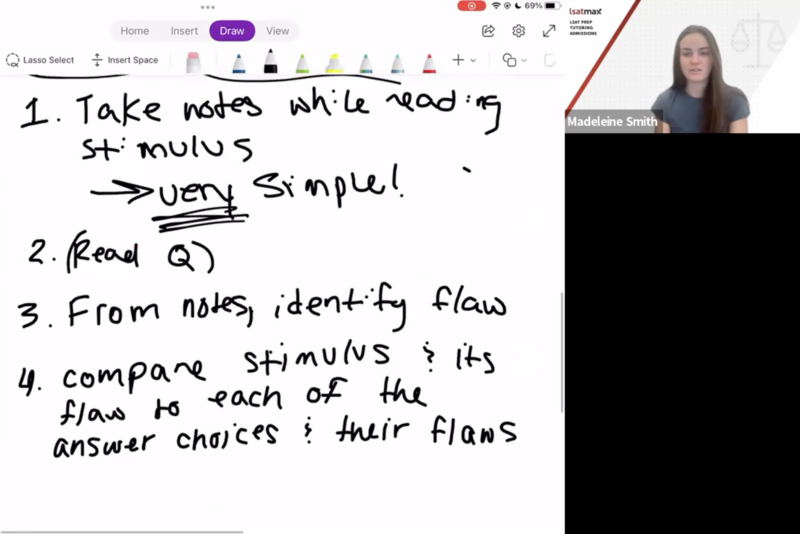 69%
Home Insert Draw View
Lasso Select Insert Space
lsatmax
LSAT PREP
TUTORING
ADMISSIONS
Madeleine Smith
1. Take notes while reading
stimulus
→ very simple!
2. (Read Q)
3. From notes, identify flaw
4. compare stimulus & its
flaw to each of the
answer choices & their flaws